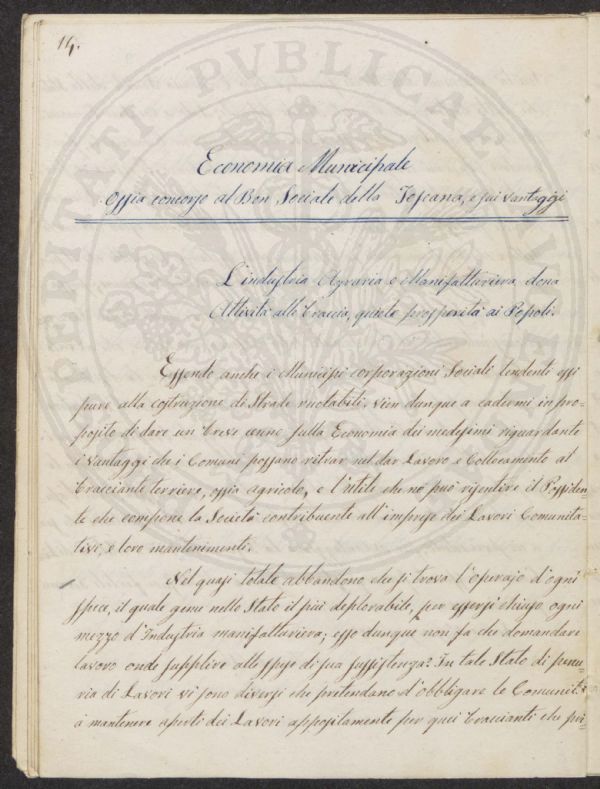 14.
Economia Municipale
Ossia concorso al Ben Sociale della Toscana, e sui vantaggi
L'industria Agraria e Manifatturiera, dona
Attività alle braccia, quiete prosperità ai Popoli.
Essendo anche i Municipi corporazioni Sociali tendenti essi
pure alla costruzione di Strade ruotabili. vien dunque a cadermi in pro-
posito di dare un breve cenno sulla Economia dei medesimi riguardante
i Vantaggi che i Comuni possano ritrar nel dar Lavoro e Collocamento al
bracciante terriere, ossia agricolo, e l'utile che ne può risentire il Possiden-
te che compone la Società contribuente all'imprese dei Lavori Comunita-
tivi, e loro mantenimenti.
Nel quasi totale abbandono che si trova l'operajo d'ogni
specie, il quale geme nello Stato il più deplorabile, per essersi chiuso ogni
mezzo d'Industria manifatturiera; esso dunque non fa che domandare
lavoro onde supplire alle spese di sua sussistenza? In tale Stato di penu-
ria di Lavori vi sono diversi che pretendano d'obbligare le Comunità
a mantenere aperti dei Lavori appositamente per quei braccianti che pri-
PVBLICAE